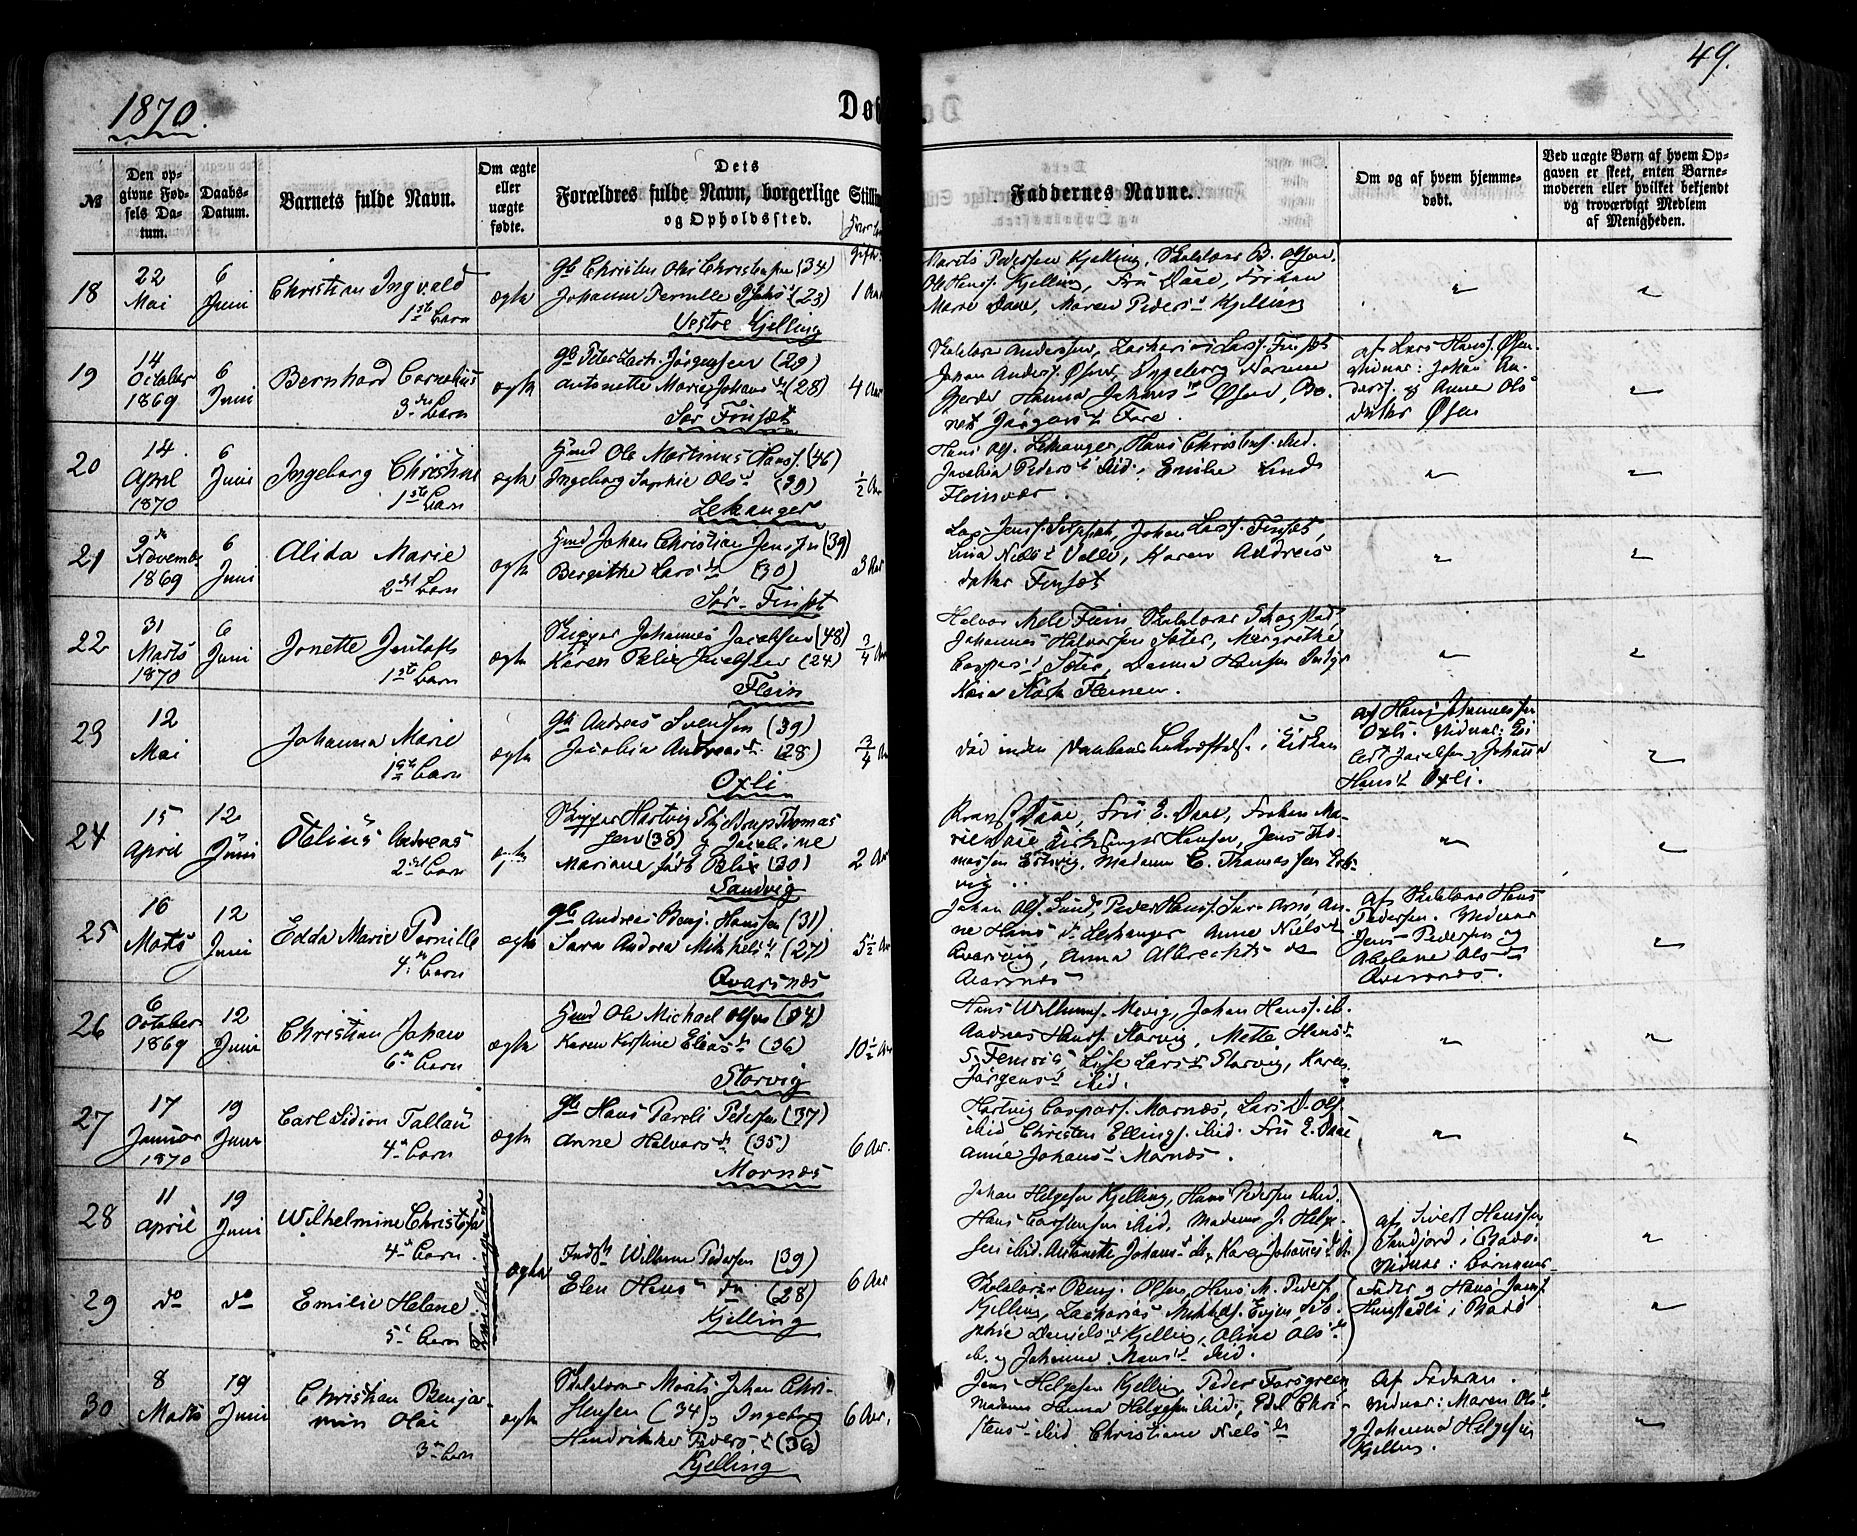 49.
1870.
Døb
№
Den op-
givne Fød-
sels Da-
tum.
Daabs-
Datum.
Barnets fulde Navn.
Om ægte
eller
uægte
fødte.
Dets
Forældres fulde Navn, borgerlige Stilling
og Opholdssted.
Faddernes Navne.
Om og af hvem hjemme-
døbt.
Ved uægte Børn af hvem Op-
gaven er skeet, enten Barne-
moderen eller hvilket bekjendt
og troværdigt Medlem
af Menigheden.
18
22
Mai
6
Juni
Christian Ingvald
1ste Barn
ægte
Gb Christen Ols Christensen (34)
Johanna Pernille (23)
Vestre Kjelling
1 Aar
Morits Pedersen Kjelling, Skolelærer B. Olsen,
Ole Hanss. Kjelling, Fru Daae, Frøken
Marie Daae, Maren Peders d Kjelling
19
14
October
1869
6
Juni
Bernhard Cornelius
3die Barn
ægte
Gb Peter Zach. Jørgensen (29)
Antonette Marie Johans dr (28)
Sør Finsæt
4 Aar
Skolelærer Andersen, Zacharias Larss. Finsæt
Johan Anders. Øsen
Hanna Johans d Øsen
af Lars Hanss. Øsen
Vidner: Johan An-
derss. og Anne Ols
datter Øsen
20
14
April
1870
6
Juni
Ingeborg Christine
1ste Barn
ægte
Hmd Ole Martinus Hanss. (46)
Ingeborg Sophie Ols d (39)
Lekanger
½ Aar
Hans Ols. Lekanger, Hans Christens. ibid.
Jacobia Peders d ibid., Emilie Lund
Fleinvær.
21
9de
Novembr
1869
6
Juni
Alida Marie
2det Barn
ægte
Hmd Johan Christian Jenssen (39)
Bergithe Lars dr (30)
Sør-Finsæt
3 Aar
Lars Jenss. Johan Larss. Finsæt,
Lina Niels d Valle, Karen Andreas
datter Finsæt
22
31
Marts
1870
6
Juni
Jonette Jentofts
1ste Barn
ægte
Skipper Johannes Jacobsen (48)
Karen Pelix Jacobsen (24)
Flein
¾ Aar
Halvor Mele Flein, Skolelærer Skogstad,
Johannes Halvorsen Sæter, Margrethe
Caspers d Sæter, Danna Hansen
23
12
Mai
Johanna Marie
1ste Barn
ægte
Gb Andreas Svendsen (39)
Jacobia Andreas dr (28)
Oxli
¾ Aar
Død inden Daabens Bekræftelse i Kirken
af Hans Johannessen
Oxli. Vidner: Ei
lert Jacobsen og Johanna
Hans d Oxli.
24
15
April
12
Juni
Otelius Andreas
2det Barn
ægte
Skipper Hartvig Skjelderup Thomas
sen (38) og Jacobine
Mariane født Blix (30)
Sandvig
2 Aar
Provst Daae, Fru E. Daae, Frøken Ma-
rie Daae, Kirkesanger Hansen, Jens Tho-
massen Ertsvig, Madame C. Thomassen Erts-
vig
25
16
Marts
12
Juni
Edda Marie Pernille
4de Barn
ægte
Gb Andreas Benj. Hanssen (31)
Sara Andrea Mikkels d (27)
Qvarsnæs
5½ Aar
Johan Ols. Lund, Peder Hanss. Sør-Arnø, An-
ne Hans d Lekanger Anne Niels d
Qvarvig, Anna Albrechts d
Qvarsnæs
af Skolelærer Hans
Pedersen. Vidner
Jens Pedersen og
Abelone Ols d
Qvarsnæs.
26
6
October
1869
12
Juni
Christian Johan
6te Barn
ægte
Hmd Ole Michael Olsen (34)
Karen Kirstine Elias dr (36)
Storvig
10½ Aar
Hans Willums. Mevig, Johan Hanss. ib.
Andreas Hanss. Storvig, Mette Hans d
S. Femris, Lise Lars d Storvig, Karen
Jørgens d ibid.
27
17
Januar
1870
19
Juni
Carl Sidion Tallau
4de Barn
ægte
Gb Hans Pareli Pedersen (37)
Anne Halvors dr (35)
Mornæs
6 Aar.
Hartvig Caspers. Mornæs, Lars D. Ols.
ibid Christen Ellings. ibid. Fru E. Daae
Anne Johans d Mornæs.
28
11
April
19
Juni
Wilhelmine Christofa
4de Barn
Tvillinger
ægte
Inds. Willum Pedersen (39)
Elen Hans dr (28)
Kjelling
6 Aar
Johan Helgesen Kjelling, Hans Pedersen ibid.
Hans Carstensen ibid. Madame J. Helge-
sen ibid. Antonette Johans d ib, Karen Johannes d ib.
af Sivert Hanssen
Sandjord i Bodø.
Vidner: Børnenes
29
do
do
Emilie Helene
5te Barn
Skolelærer Benj. Olsen, Hans M. Peders.
Kjelling, Zacharias Mikkels. Evjen, So-
phie Daniels d Kjelling, Oline Ols d
ib. og Johanne Mons d ibid.
Fader og Hans Jons.
i Bodø
30
8
Marts
19
Juni
Christian Benja-
min Hai
3die Barn
ægte
Skolelærer Morits Johan Chri-
stensen (34) og Ingeborg
Hendrikke Peders d (36)
Kjelling
6 Aar.
Jens Helgesen Kjelling, Peder Forsgreen
Madame Hanna Helgesen ibid., Edel Chri-
stens d ibid Christiane Niels dr
af Faderen.
Vidner: Maren Ols d
og Johanna Helgesen
Kjelling.